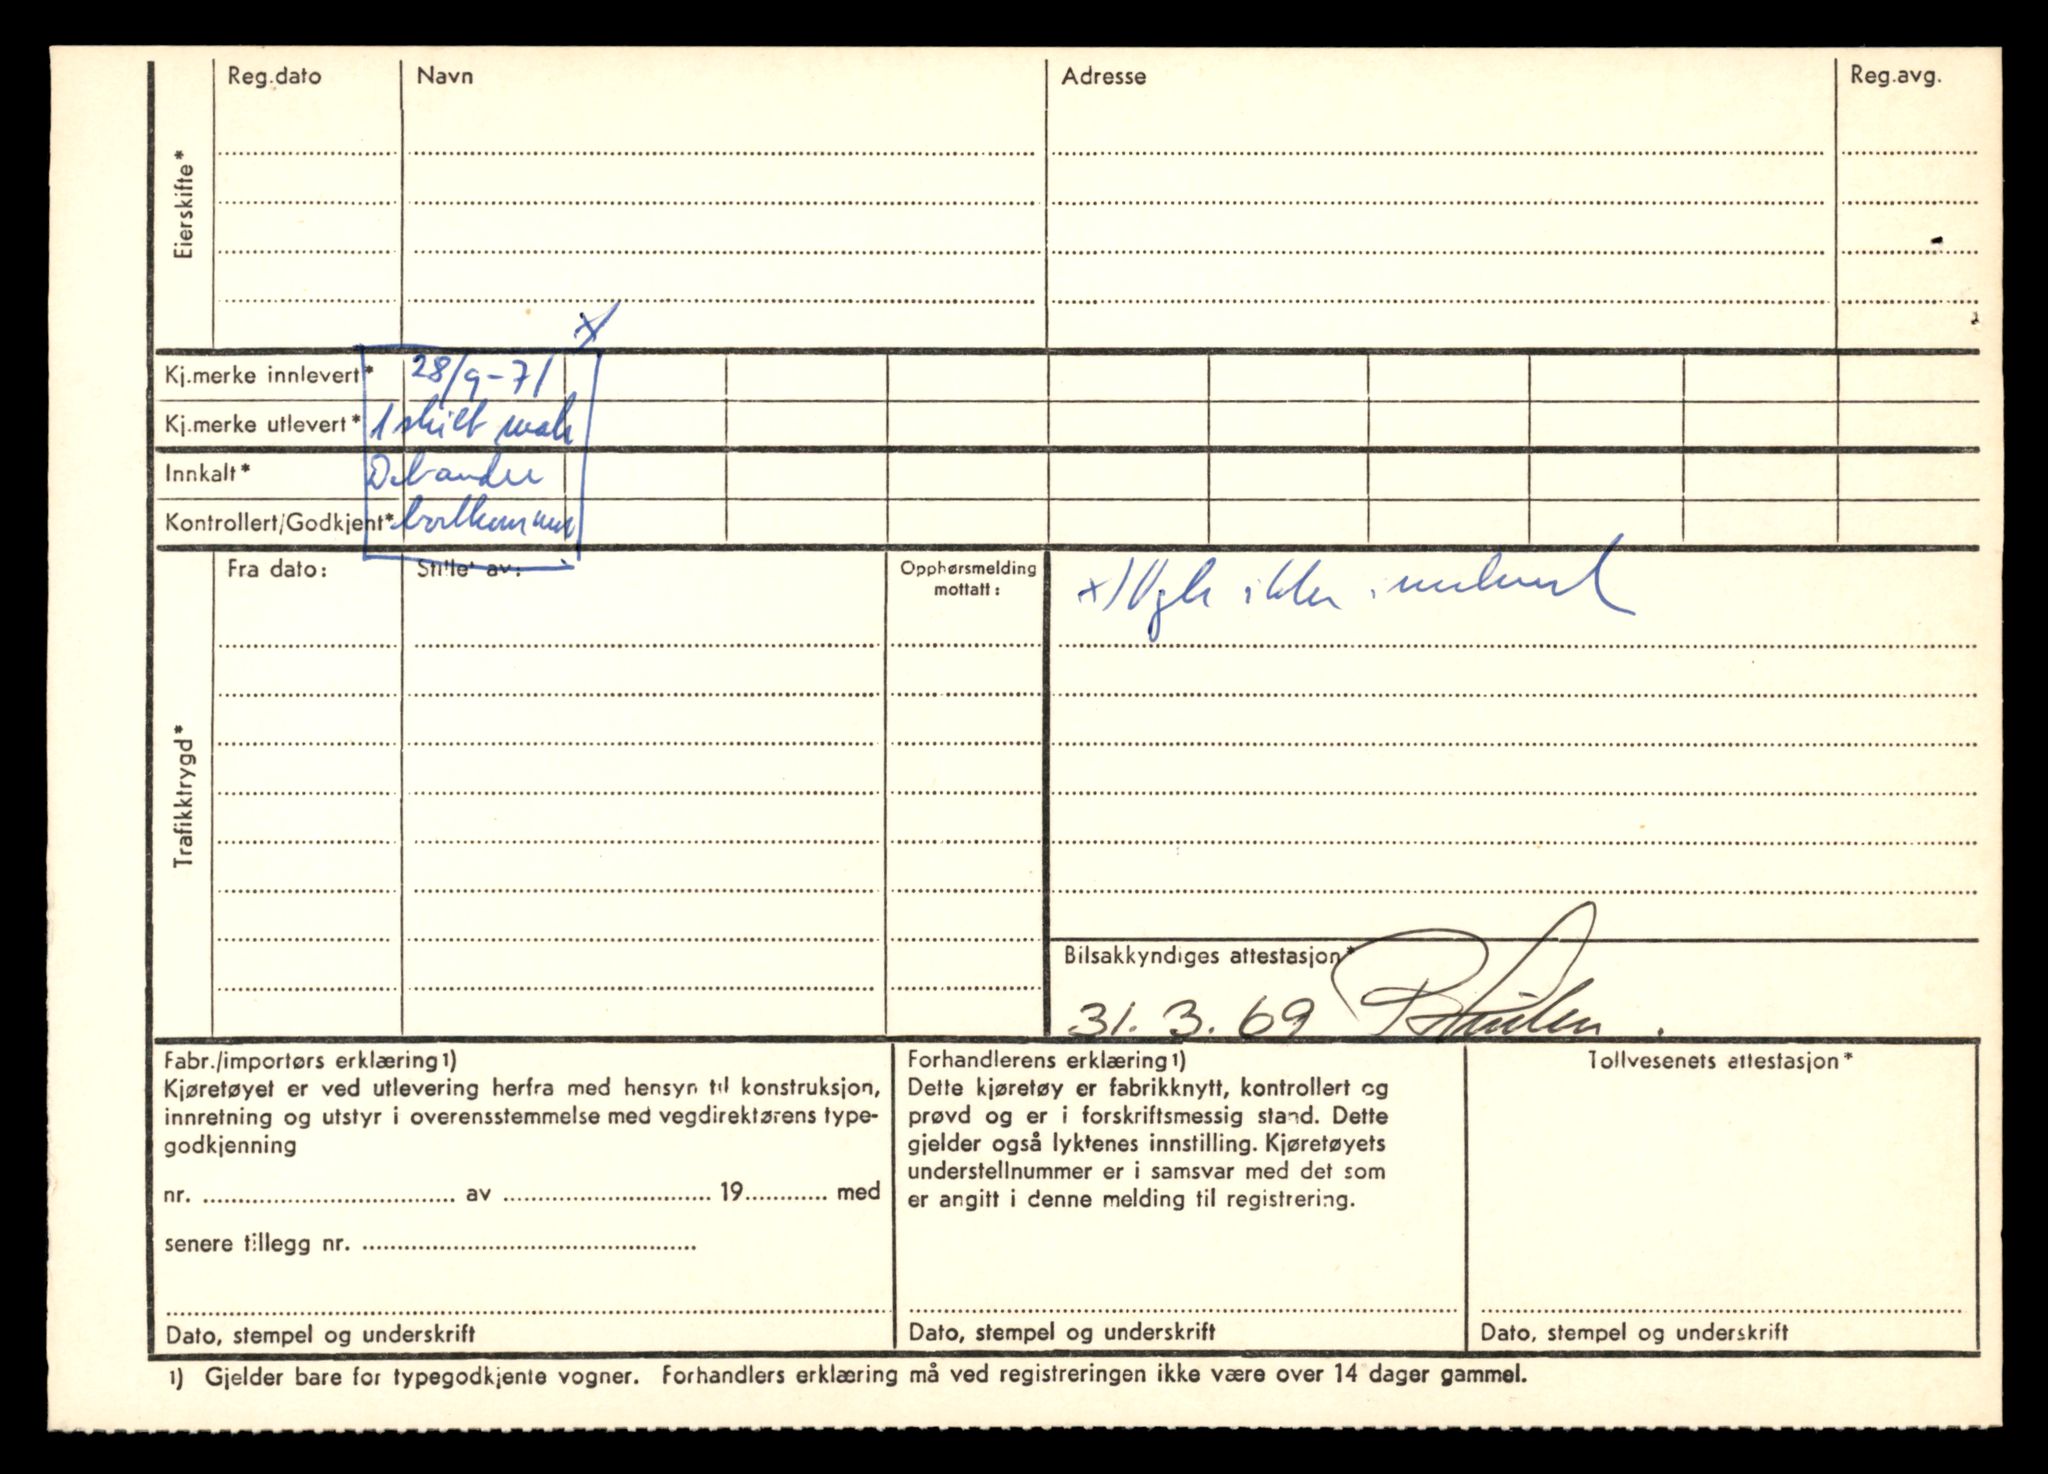 Reg.dato Navn Adresse Reg.avg.
Eierskifte*
x
Kj.merke innlevert* 28/9-71
Kj.merke utlevert* 1 skilt
Innkalt* Det andre
Kontrollert/Godkjent* bortkommet
Fra dato: Stillet av: Opphørsmelding
mottatt:
x) Vgk ikke innlevert
Trafikktrygd*
Bilsakkyndiges attestasjon*
31. 3. 69
Fabr./importørs erklæring1)
Kjøretøyet er ved utlevering herfra med hensyn til konstruksjon,
innretning og utstyr i overensstemmelse med vegdirektørens type-
godkjenning
nr. .................... av .................... 19............ med
senere tillegg nr. ....................
Dato, stempel og underskrift
Forhandlerens erklæring1)
Dette kjøretøy er fabrikknytt, kontrollert og
prøvd og er i forskriftsmessig stand. Dette
gjelder også lyktenes innstilling. Kjøretøyets
understellnummer er i samsvar med det som
er angitt i denne melding til registrering.
Dato, stempel og underskrift
Tollvesenets attestasjon*
Dato, stempel og underskrift
1) Gjelder bare for typegodkjente vogner. Forhandlers erklæring må ved registreringen ikke være over 14 dager gammel.